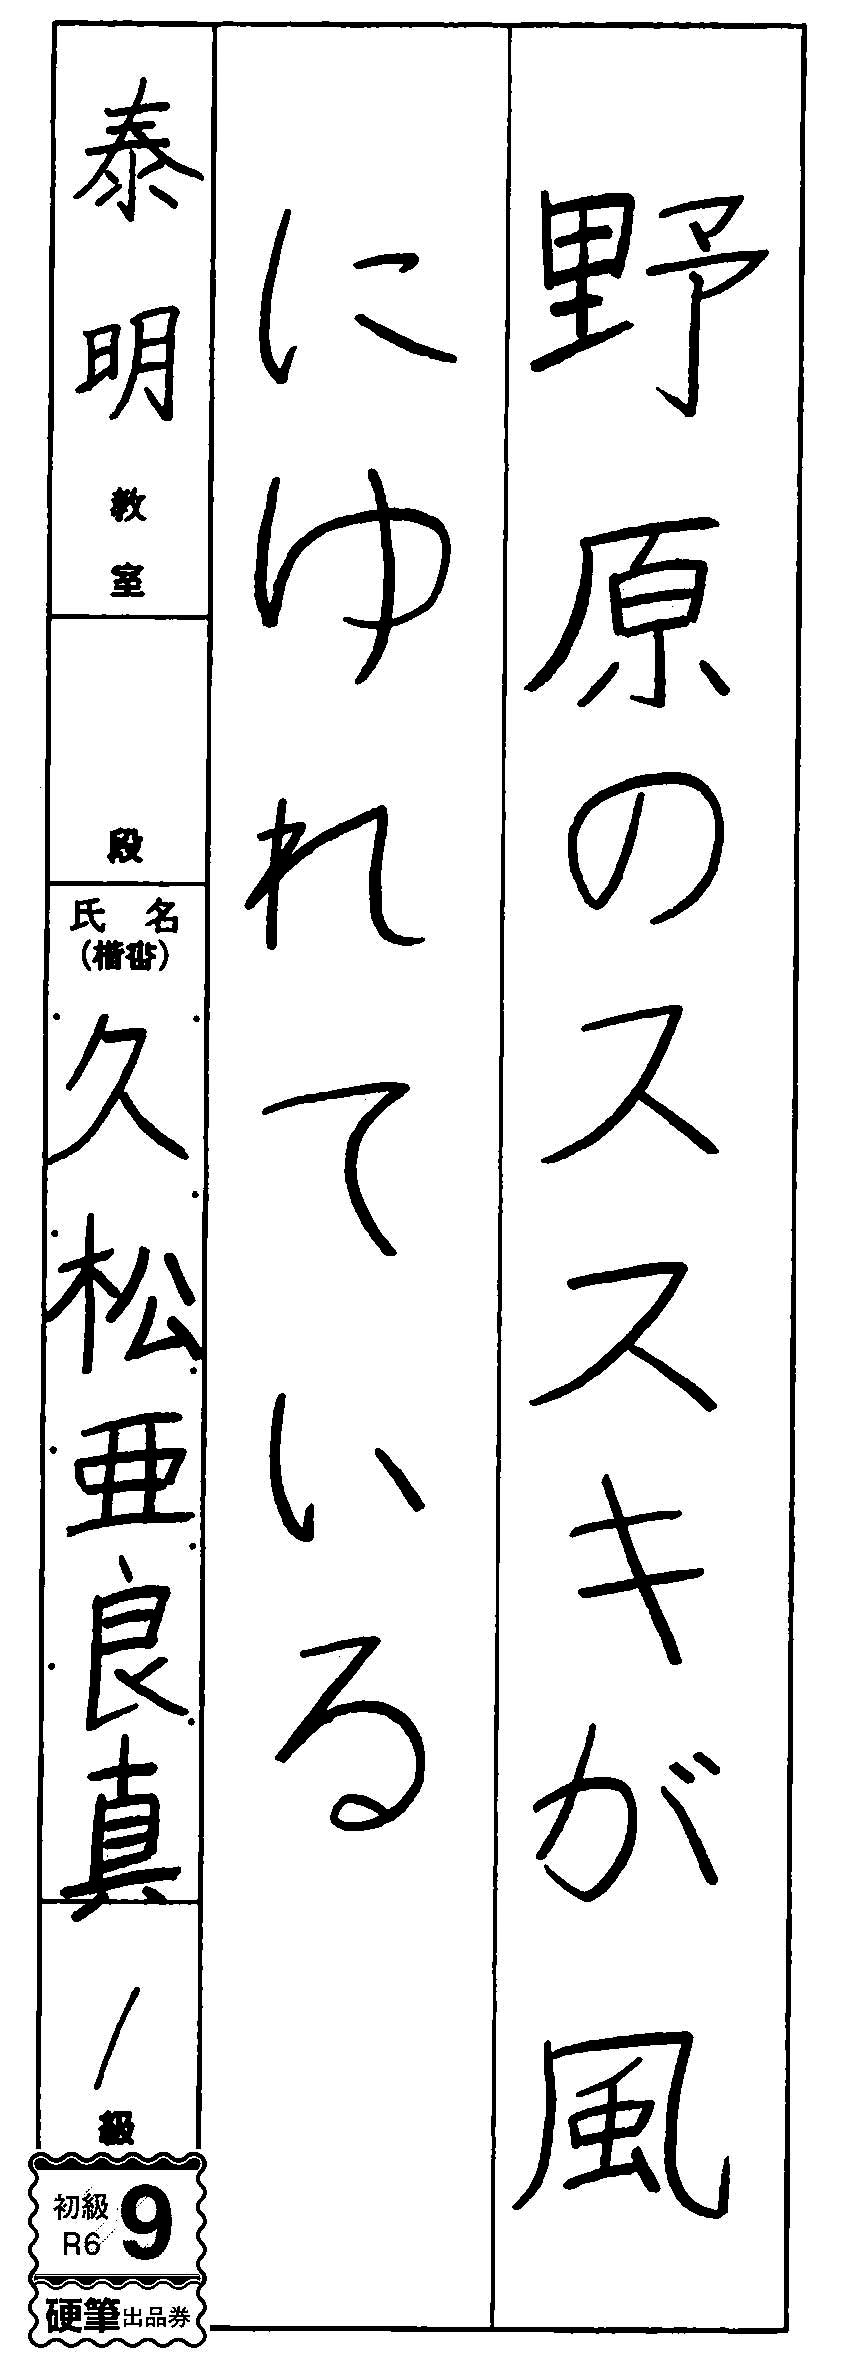 野原のススキが風
にゆれている
泰明教室
段
氏名
(楷書)
久松亜良真
1級
初級
R6
9
硬筆出品券